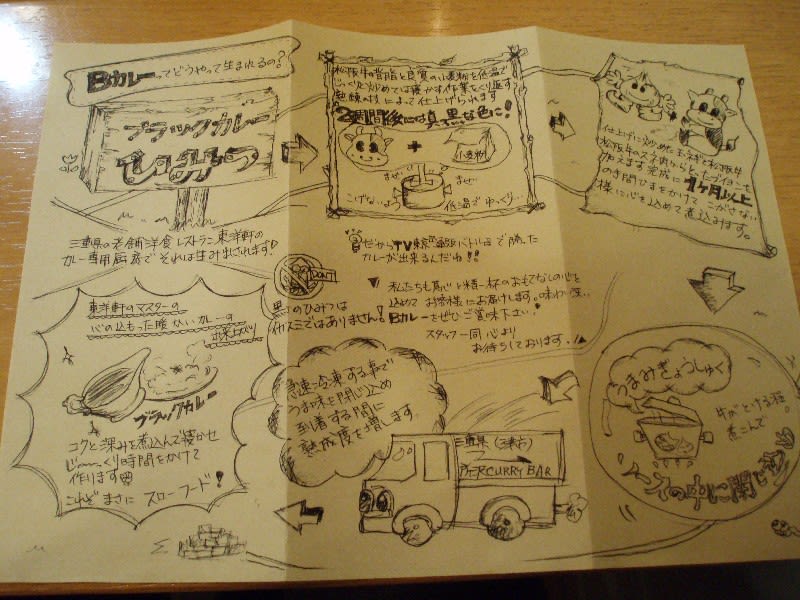 Bカレーってどうやって生まれるの?
ブラックカレー
ひみつ
三重県の老舗洋食レストラン東洋軒の
カレー専用厨房でそれは生み出されます!
松阪牛の背脂と良質の小麦粉を低温で
じっくり炒めては寝かす作業をくり返す
熟練の技によって仕上げられます
2週間後には真黒な色に!
+
小麦粉
まぜ
まぜ
こげないよう
低温でゆっくり
仕上げに炒めた玉ネギと松阪牛
松阪牛のスネ肉からとったブイヨンを
加えます 完成に1ヶ月以上
の手間ひまをかけて こがさない
様に心を込めて煮込みます。
だからTV
バトルは で勝った
カレーが出来るんだね!!
私たちも真心と精一杯のおもてなしの心を
込めて お客様にお届けします。味わい深い
Bカレーをぜひご賞味下さい!
スタッフ一同 心より
お待ちしております。
DON'T
黒さのひみつは
イカスミではありません!
東洋軒のマスターの
心の込もった暖かいカレーの
出来上がり
ブラックカレー
コクと深みを煮込んで寝かせ
じ〜っくり時間をかけて
作ります
これぞまさに スローフード!
急速冷凍する事で
うま味を閉じ込め
到着する間に
熟成度を増します
三重県(津市)
BERCURRY BAR
うまみぎょうしゅく
牛がとける程
煮こんで
ソースの中に閉じ